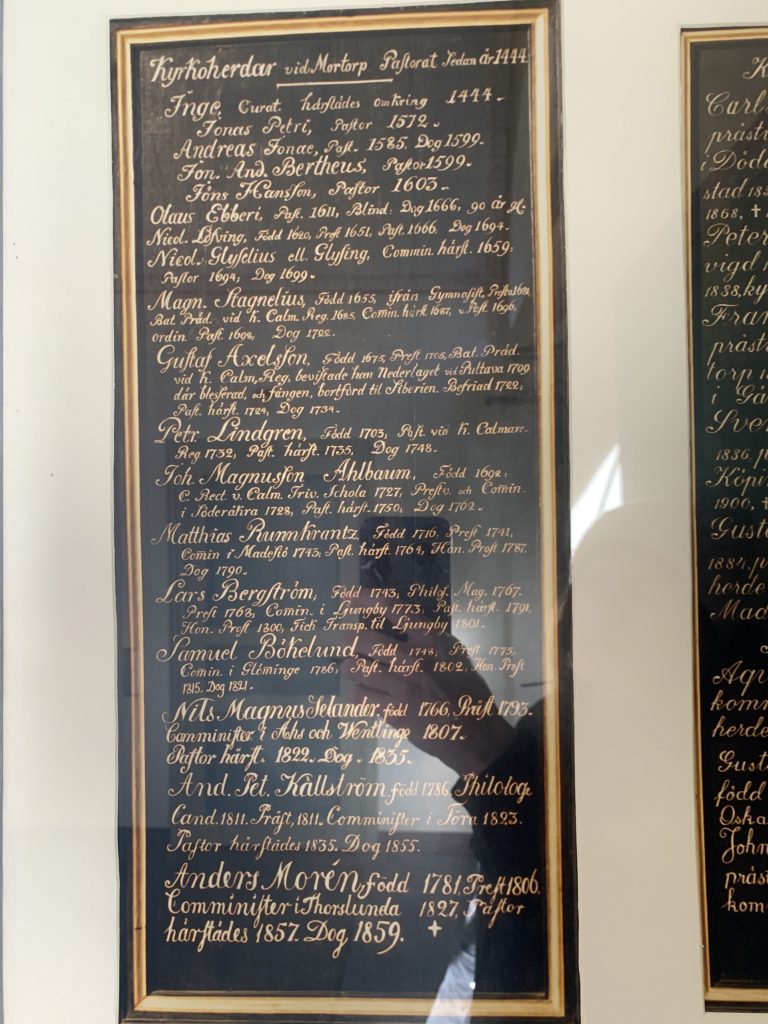 Kyrkoherdar vid Mortorp Pastorat Sedan år 1444
Inge, Curat. härstädes omkring 1444.
Jonas Petri, Pastor 1572.
Andreas Jonae, Past. 1585, Dog 1599.
Jon. And. Bertheus, Pastor 1599.
Jöns Hansson, Pastor 1603.
Olaus Ebberi, Past. 1611, Blind, Dog 1666, 90 år gl.
Nicol. Löfving, Född 1620, Prest 1651, Past. 1666, Dog 1694.
Nicol. Glyselius ell. Glysing, Commin. härst. 1659,
Pastor 1694, Dog 1699.
Magn. Stagnelius, Född 1655, ifrån Gymnosist,
Bat. Präd. vid K. Calm. Reg. 1685, Comm. härst 1687, v. Past 1696,
ordin Past. 1698, Dog 1722.
Gustaf Axelsson, Född 1675, Prest 1705, Bat. Präd.
vid K. Calm. Reg. bevistade han Nederlaget vid Pultava 1709
där blesserad, och fången, bortförd til Siberien. Befriad 1722,
Past. härst. 1724, Dog 1734.
Petr. Lindgren, Född 1703, Past. vid K. Calmare-
Reg 1732, Past. härst. 1735, Dog 1748.
Joh. Magnusson Ahlbaum, Född 1692,
C. Rect. v. Calm. Triv. Schola 1727, Prestv. och Comin.
i Söderåkra 1728, Past. härst. 1750, Dog 1762.
Matthias Runnkrantz, Född 1716, Prest 1741,
Comin i Madesiö 1743, Past. härst 1764, Hon. Prost 1787,
Dog 1790.
Lars Bergström, Född 1743, Philos. Mag. 1767.
Prest 1768, Comin. i Ljungby 1773, Past. härst. 1791,
Hon. Prost 1800, Fick Transp. til Ljungby 1801.
Samuel Bökelund, Född 1748, Prest 1775,
Comin. i Glöminge 1786, Past. härst. 1802, Hon. Prost
1815, Dog 1821.
Nils Magnus Selander, född 1766, Präst 1793.
Comminister i Åhs och Ventlinge 1807.
Pastor härst. 1822. Dog. 1835.
And. Pet. Källström född 1786, Philologe
Cand. 1811. Präst, 1811. Comminister i Töra 1823.
Pastor härstädes 1835. Dog 1855.
Anders Morén, född 1781, Prest 1806.
Comminister i Thorslunda 1827, Pastor
härstädes 1857. Dog 1859.
K
Carl
prästvi
i Döde
stad 18
1868, †
Peter
vigd
1838, ky
Fran
präst
torp
i Gå
Sven
1836, p
Köpin
1900, †
Gust
1884, p
herde
Mad
Aqv
komm
herde
Gust
född
Oska
John
präst
kom